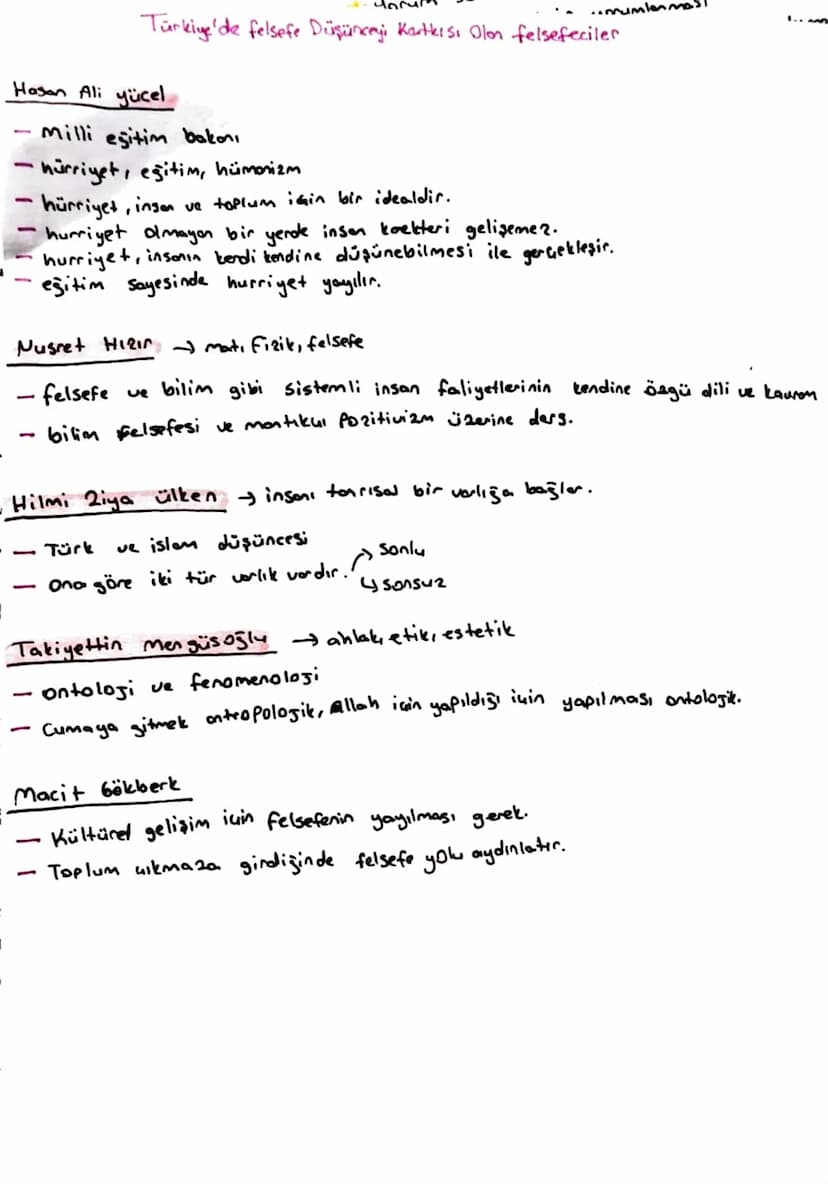 Türkiye'de felsefe Düşünceji Kartkısı Olan felsefeciler
Hasan Ali yücel
- Milli eğitim bakanı
- hürriyet, eğitim, hümanizm
- hürriyet, insan ve toplum için bir idealdir.
- hurriyet olmayan bir yerde insan karekteri gelişemez.
- hurriyet, insanın kendi kendine düşünebilmesi ile gerçekleşir.
- eğitim sayesinde hurriyet yayılır.
Nusret Hızır → mat, fizik, felsefe
- felsefe ve bilim gibi sistemli insan faliyetlerinin kendine özgü dili ve kavram
- bilim felsefesi ve mantıkçı pozitivizm üzerine ders.
Hilmi Ziya ülken → insanı tanrısal bir varlığa bağlar.
- Türk ve islam düşüncesi
- Ona göre iki tür varlık vardır. → sonlu
↳ sonsuz
Takiyettin mengüsoğlu → ahlak, etik, estetik
- ontoloji ve fenomenoloji
- Cumaya gitmek antropolojik, Allah için yapıldığı için yapılması ontolojik.
Macit Gökberk
- Kültürel gelişim için felsefenin yayılması gerek.
- Toplum çıkmaza girdiğinde felsefe yolu aydınlatır.